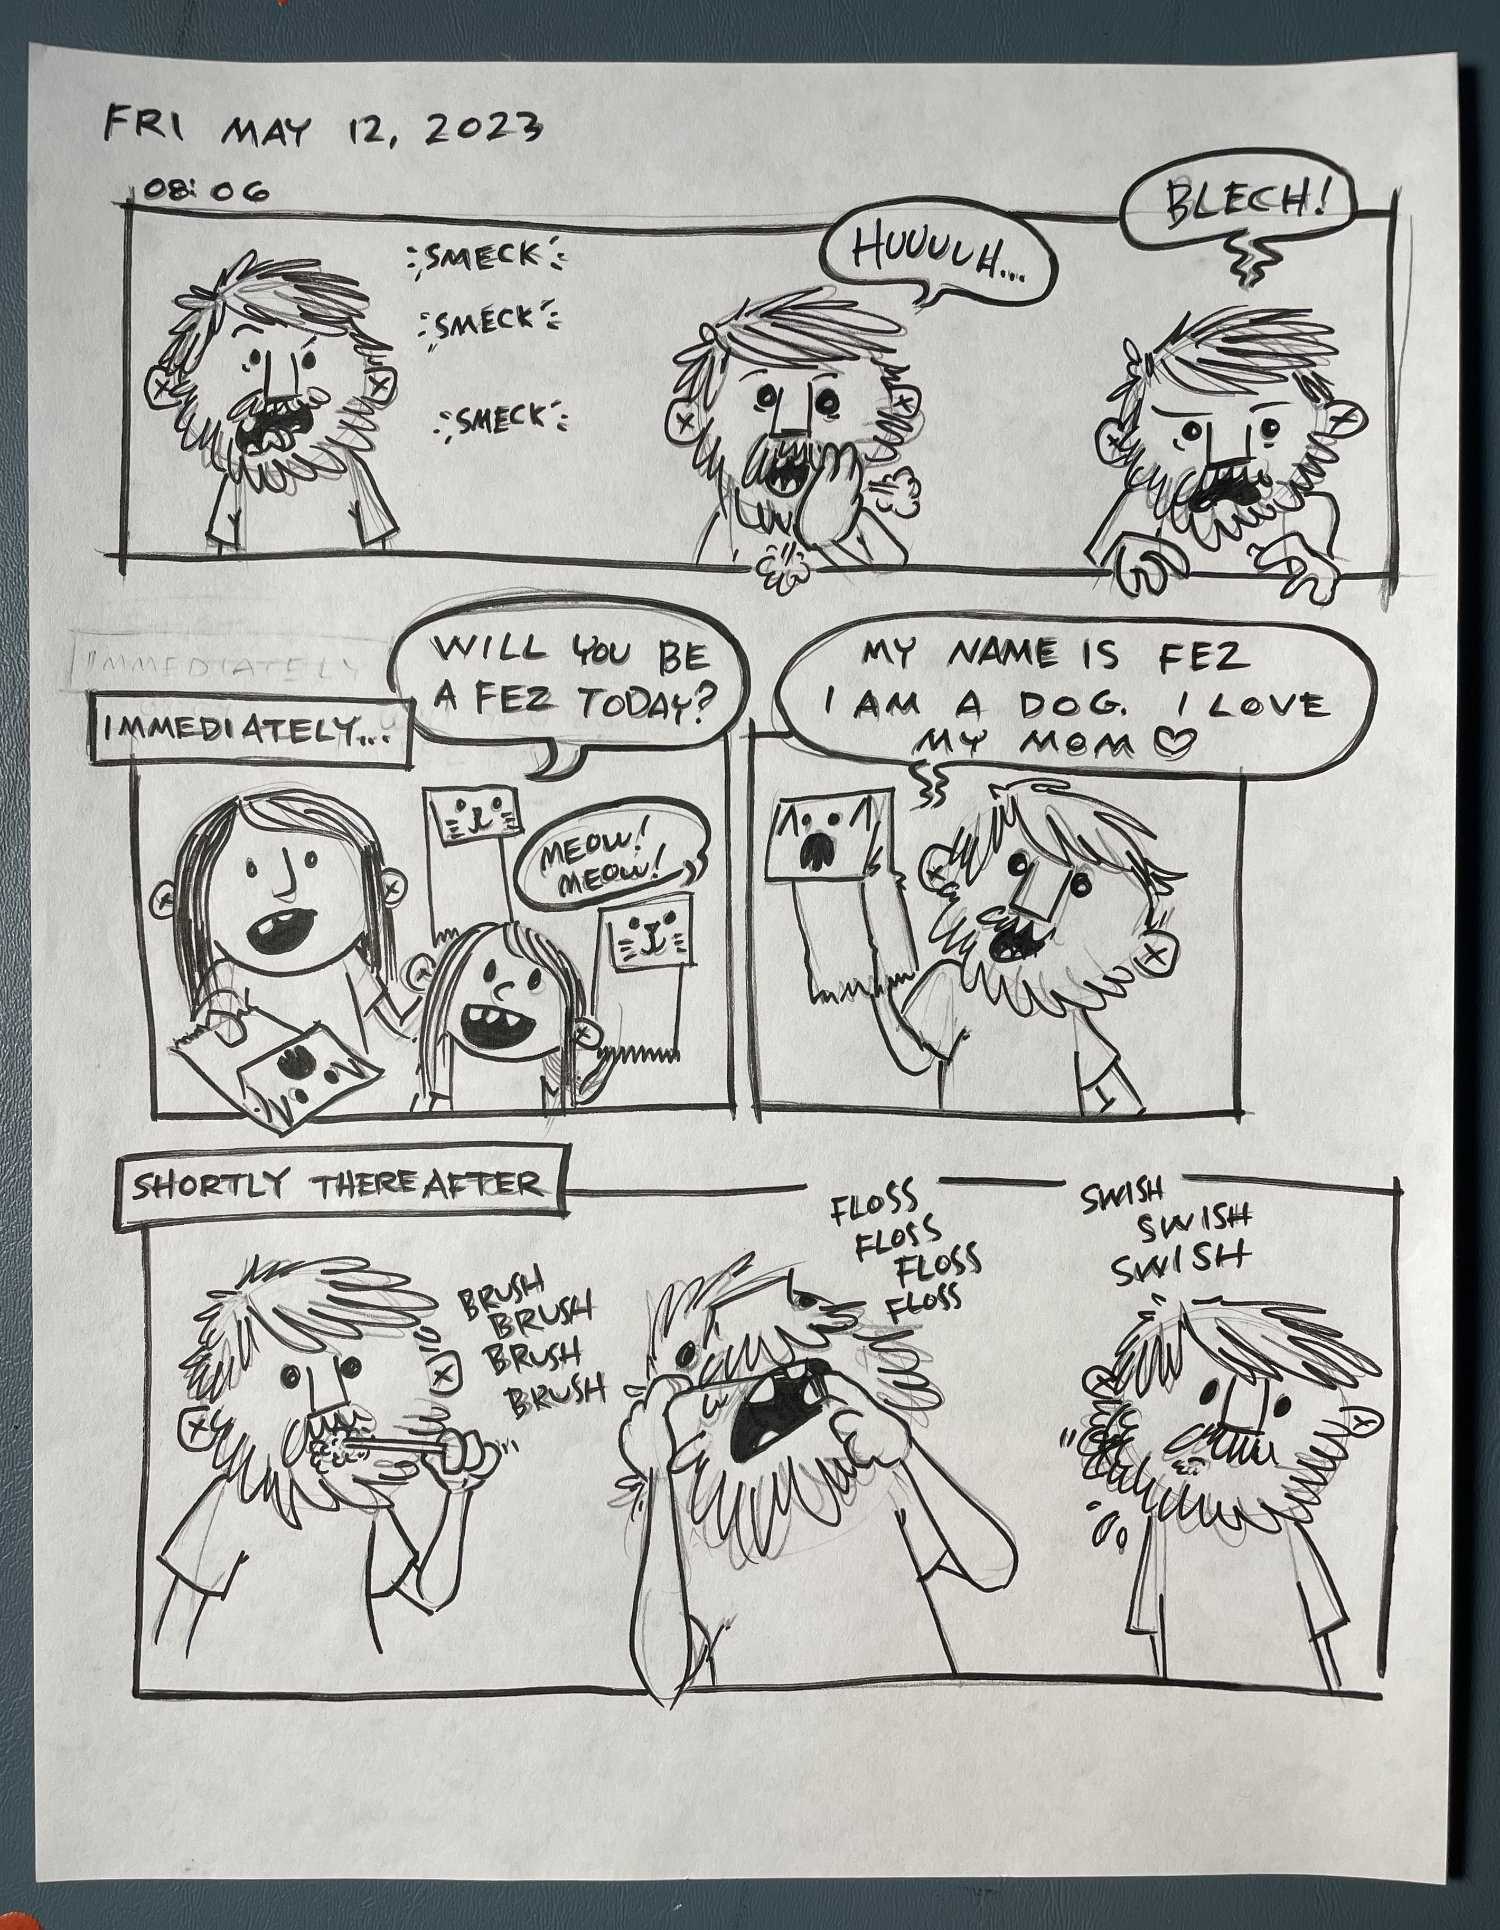 FRI MAY 12, 2023
08:06
SMECK
SMECK
SMECK
HUUUUH...
BLECH!
IMMEDIATELY
IMMEDIATELY...
WILL YOU BE
A FEZ TODAY?
MEOW!
MEOW!
MY NAME IS FEZ
I AM A DOG. I LOVE
MY MOM ♡
SHORTLY THEREAFTER
BRUSH
BRUSH
BRUSH
BRUSH
FLOSS
FLOSS
FLOSS
FLOSS
SWISH
SWISH
SWISH